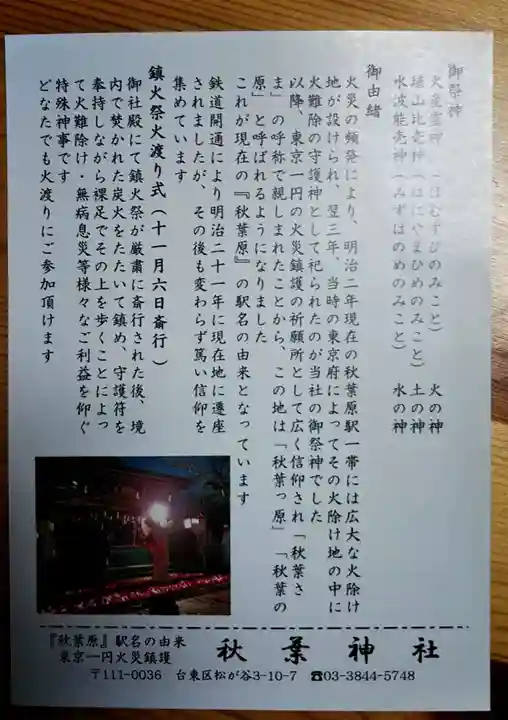 御祭神
火産霊神 (ほむすびのみこと) 火の神
埴山比売神 (はにやまひめのみこと) 土の神
水波能売神 (みずはのめのみこと) 水の神
御由緒
火災の頻発により、明治二年現在の秋葉原駅一帯には広大な火除け
地が設けられ、翌三年、当時の東京府によってその火除け地の中に
火難除の守護神として祀られたのが当社の御祭神でした
以降、東京一円の火災鎮護の祈願所として広く信仰され「秋葉さ
ま」の呼称で親しまれたことから、この地は「秋葉っ原」「秋葉の
原」と呼ばれるようになりました
これが現在の『秋葉原』の駅名の由来となっています
鉄道開通により明治二十一年に現在地に遷座
されましたが、その後も変わらず篤い信仰を
集めています
鎮火祭火渡り式(十一月六日斎行)
御社殿にて鎮火祭が厳粛に斎行された後、境
内で焚かれた炭火をたたいて鎮め、守護符を
奉持しながら裸足でその上を歩くことによっ
て火難除け・無病息災等様々なご利益を仰ぐ
特殊神事です
どなたでも火渡りにご参加頂けます
『秋葉原』駅名の由来
東京一円火災鎮護
秋葉神社
〒111-0036 台東区松が谷3-10-7 ☎03-3844-5748